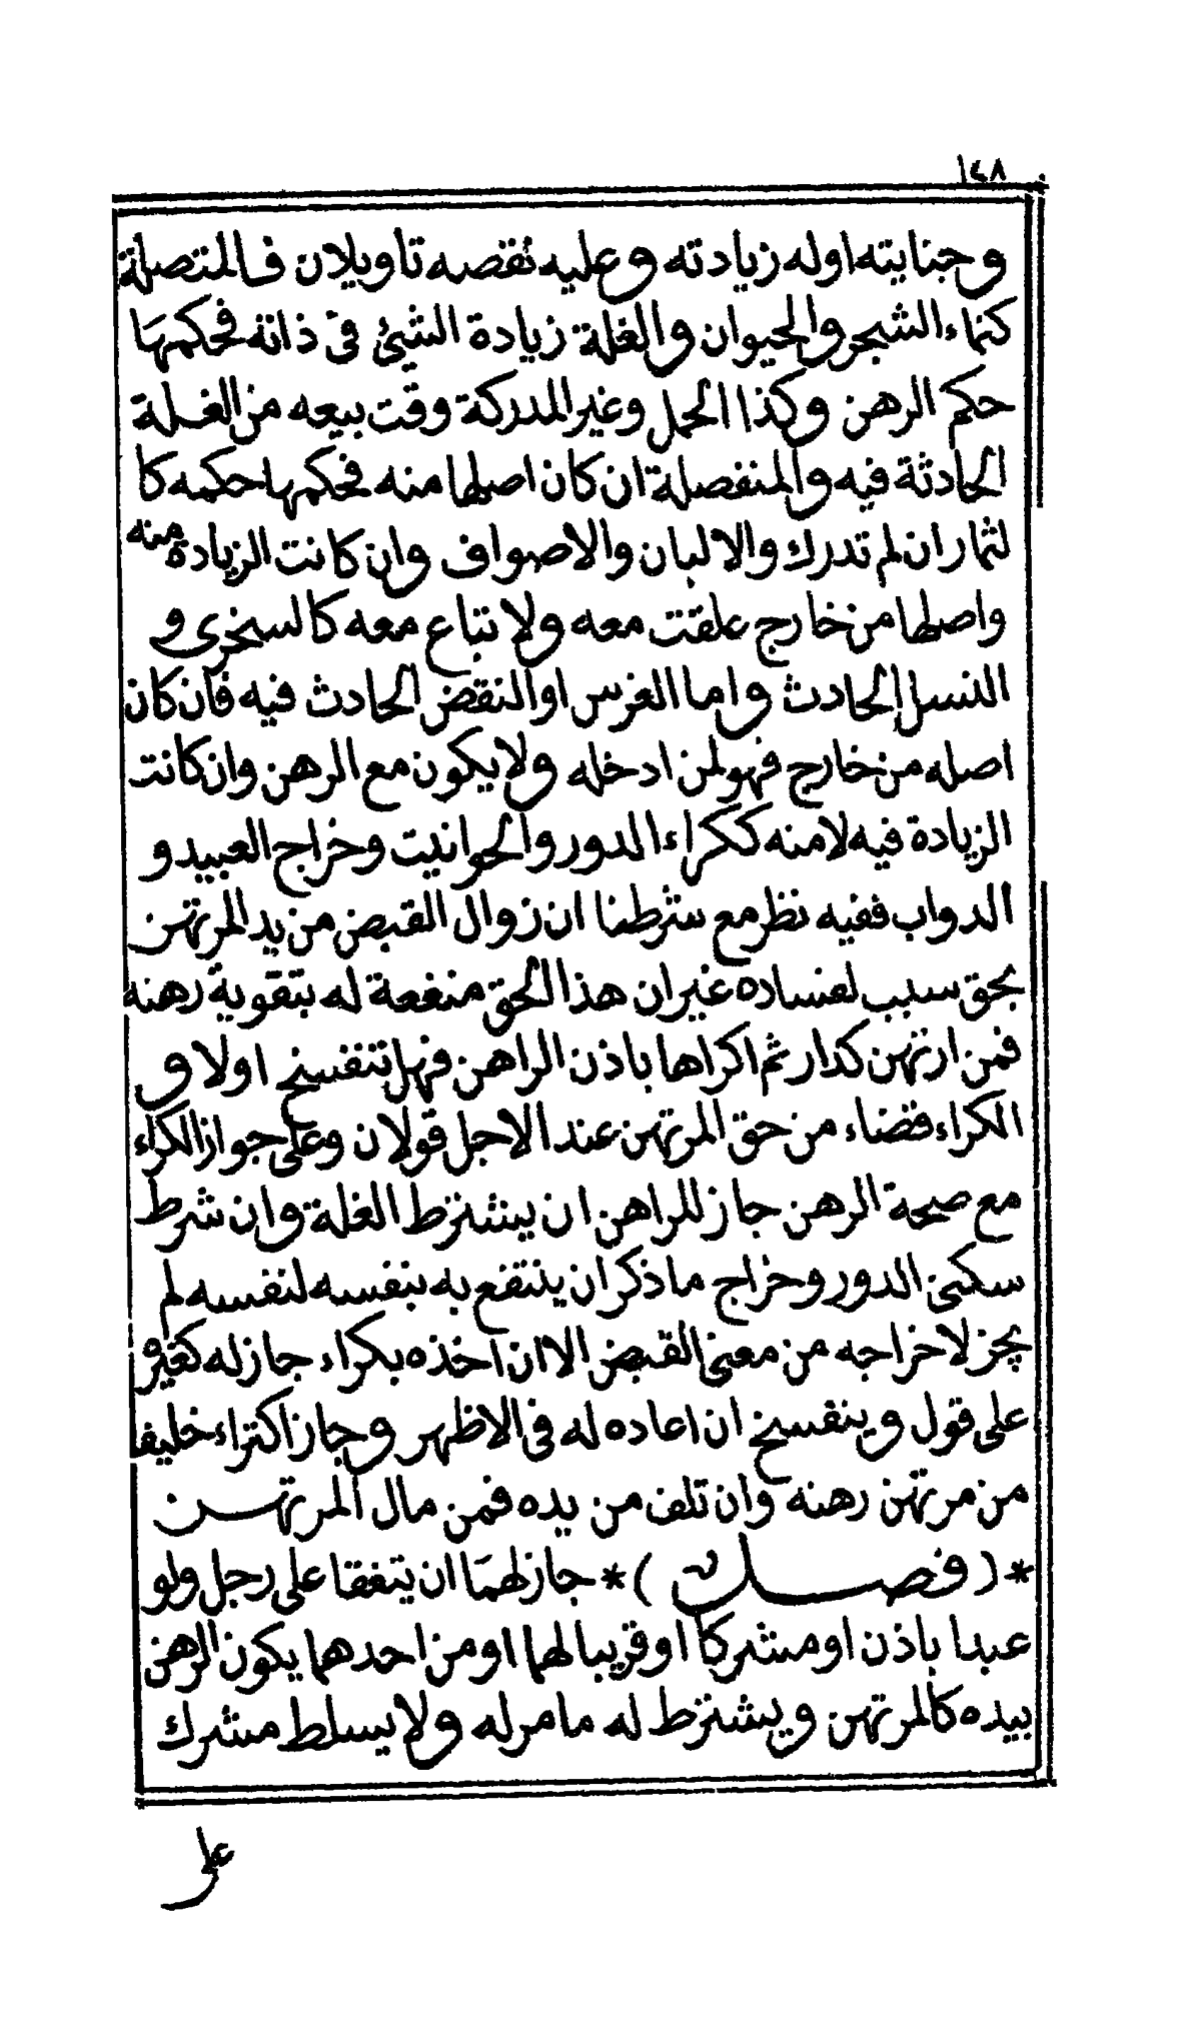 ١٤٨
وجنايته اوله زيادته وعليه نقصه تاويلان فالمتصلة
كنماء الشجر والحيوان والغلة زيادة الشئ في ذاته فحكمها
حكم الرهن وكذا الحمل وغير المدركة وقت بيعه من الغلة
الحادثة فيه والمنفصلة ان كان اصلها منه فحكمها حكمه كا
لثمار ان لم تدرك والالبان والاصواف وان كانت الزيادة منه
واصلها من خارج علقت معه ولا تباع معه كالسخري و
النسل الحادث واما الغرس او النقض الحادث فيه فان كان
اصله من خارج فهو لمن ادخله ولا يكون مع الرهن وان كانت
الزيادة فيه لا منه ككراء الدور والحوانيت وخراج العبيد و
الدواب ففيه نظر مع شرطنا ان زوال القبض من يد المرتهن
بحق سبب لفساده غير ان هذا الحق منفعة له بتقوية رهنه
فمن ارتهن كدار ثم اكراها باذن الراهن فهل تنفسخ اولا و
الكراء قضاء من حق المرتهن عند الاجل قولان وعلى جواز الكراء
مع صحة الرهن جاز للراهن ان يشترط الغلة وان شرط
سكنى الدور وخراج ما ذكر ان ينتفع به بنفسه لنفسه لم
يجز لاخراجه من معنى القبض الا ان اخذه بكراء جاز له كغيره
على قول وينفسخ ان اعاده له في الاظهر وجاز اكتراء خليفة
من مرتهن رهنه وان تلف من يده فمن مال المرتهن
*( فصل )* جاز لهما ان يتفقا على رجل ولو
عبدا باذن او مشركا او قريبا لهما او من احدهما يكون الرهن
بيده كالمرتهن ويشترط له ما مر له ولا يسلط مشرك
على